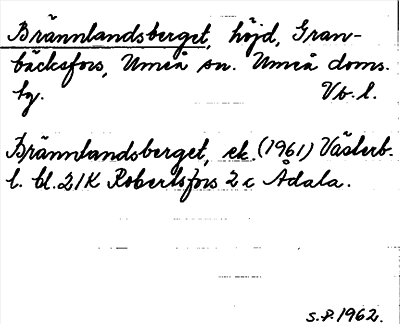 Brännlandsberget, höjd, Gran-
bäcksfors, Umeå sn. Umeå doms.
hg. Vb. l.
Brännlandsberget, ek. (1961) Västerb.
l. bl. 21K Robertsfors 2 c Ådala.
S.P. 1962.